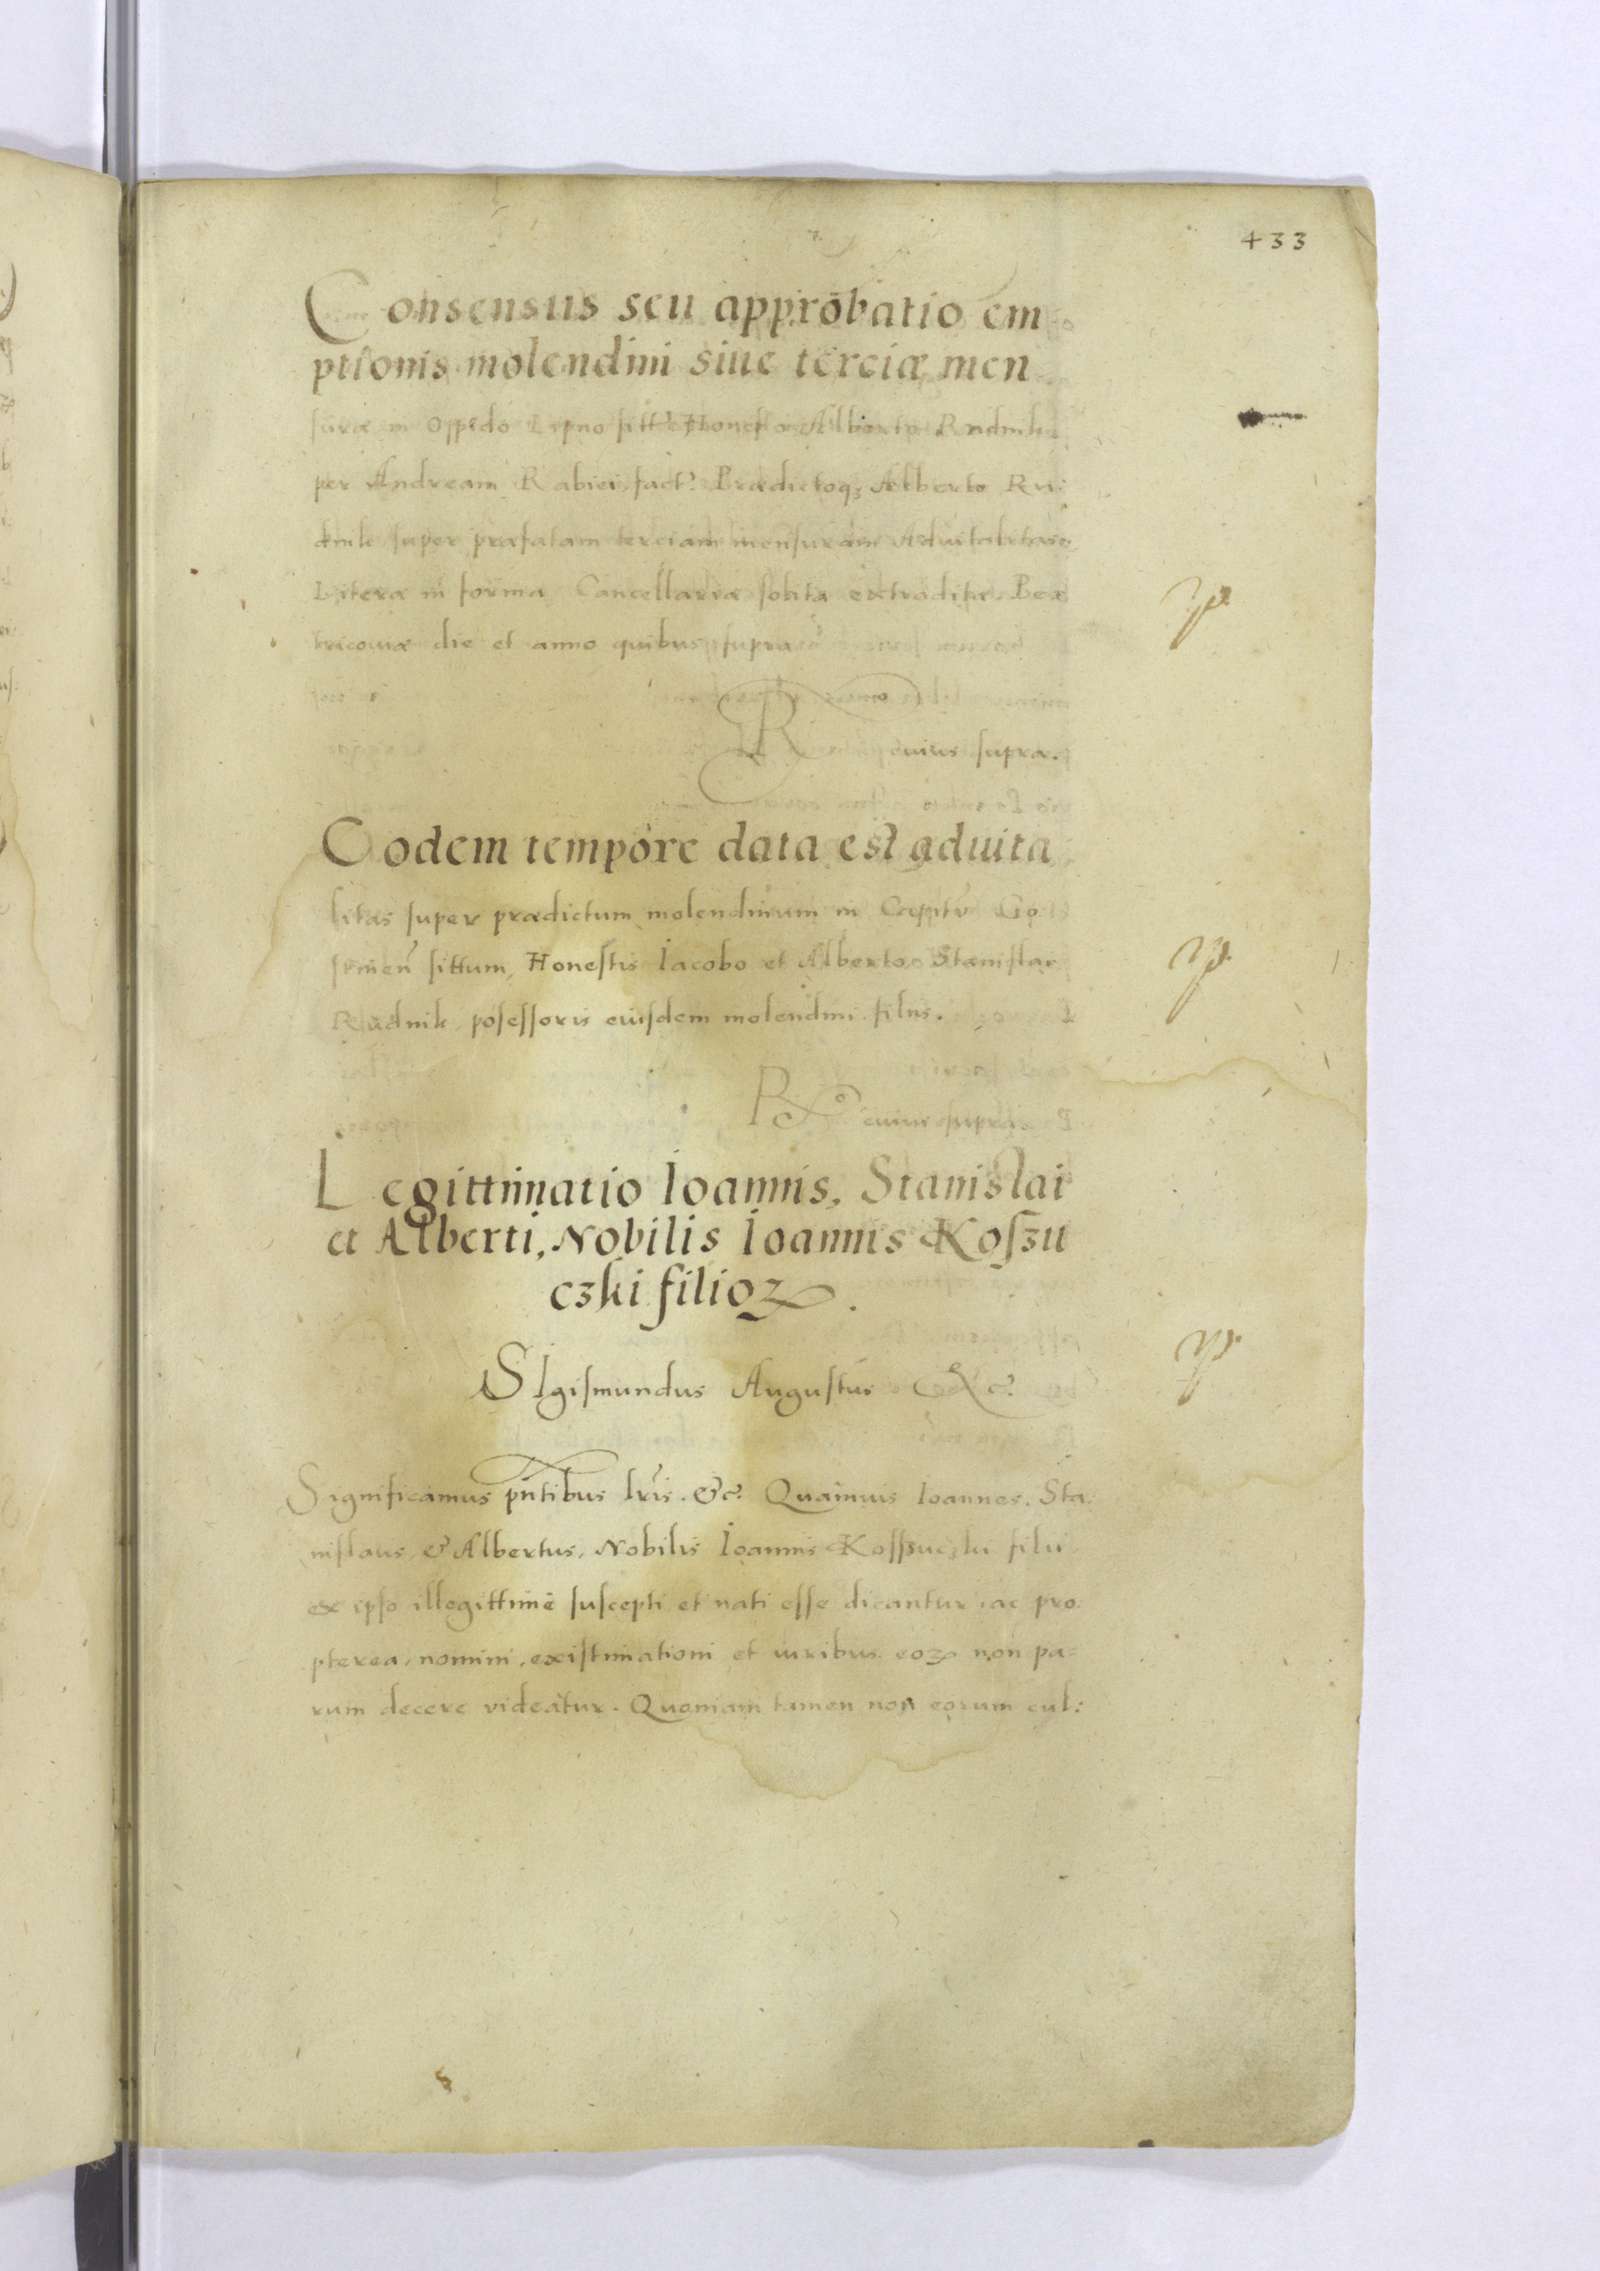 433
Consensus seu approbatio em
ptionis molendini siue terciæ men
suræ in Oppido Lipno sitt. Honesto Alberto Rudnik
per Andream Rabiei fact. Prædictoq; Alberto Ru:
dnik super præfatam terciam mensuram Aduitalitatis
Literæ in forma Cancellariæ solita extraditæ. Pe
tricouiæ die et anno quibus supra
R cuius supra.
Eodem tempore data est aduita
litas super prædictum molendinum in Capitu Go
stinen sittum, Honestis Iacobo et Alberto Stanislai
Rudnik posessoris eiusdem molendini filiis.
Ro cuius supra
Legittimatio Ioannis, Stanislai
et Alberti, Nobilis Ioannis Koszu
czki filioꝝ.
SIgismundus Augustus &c.
Significamus pñtibus lris. &c. Quamuis Ioannes. Sta:
nislaus, & Albertus, Nobilis Ioannis Koszuczki filii
ex ipso illegittimè suscepti et nati esse dicantur ac pro:
pterea, nomini, existimationi et iuribus eoꝝ non pa=
rum decere videatur. Quoniam tamen non eorum cul: